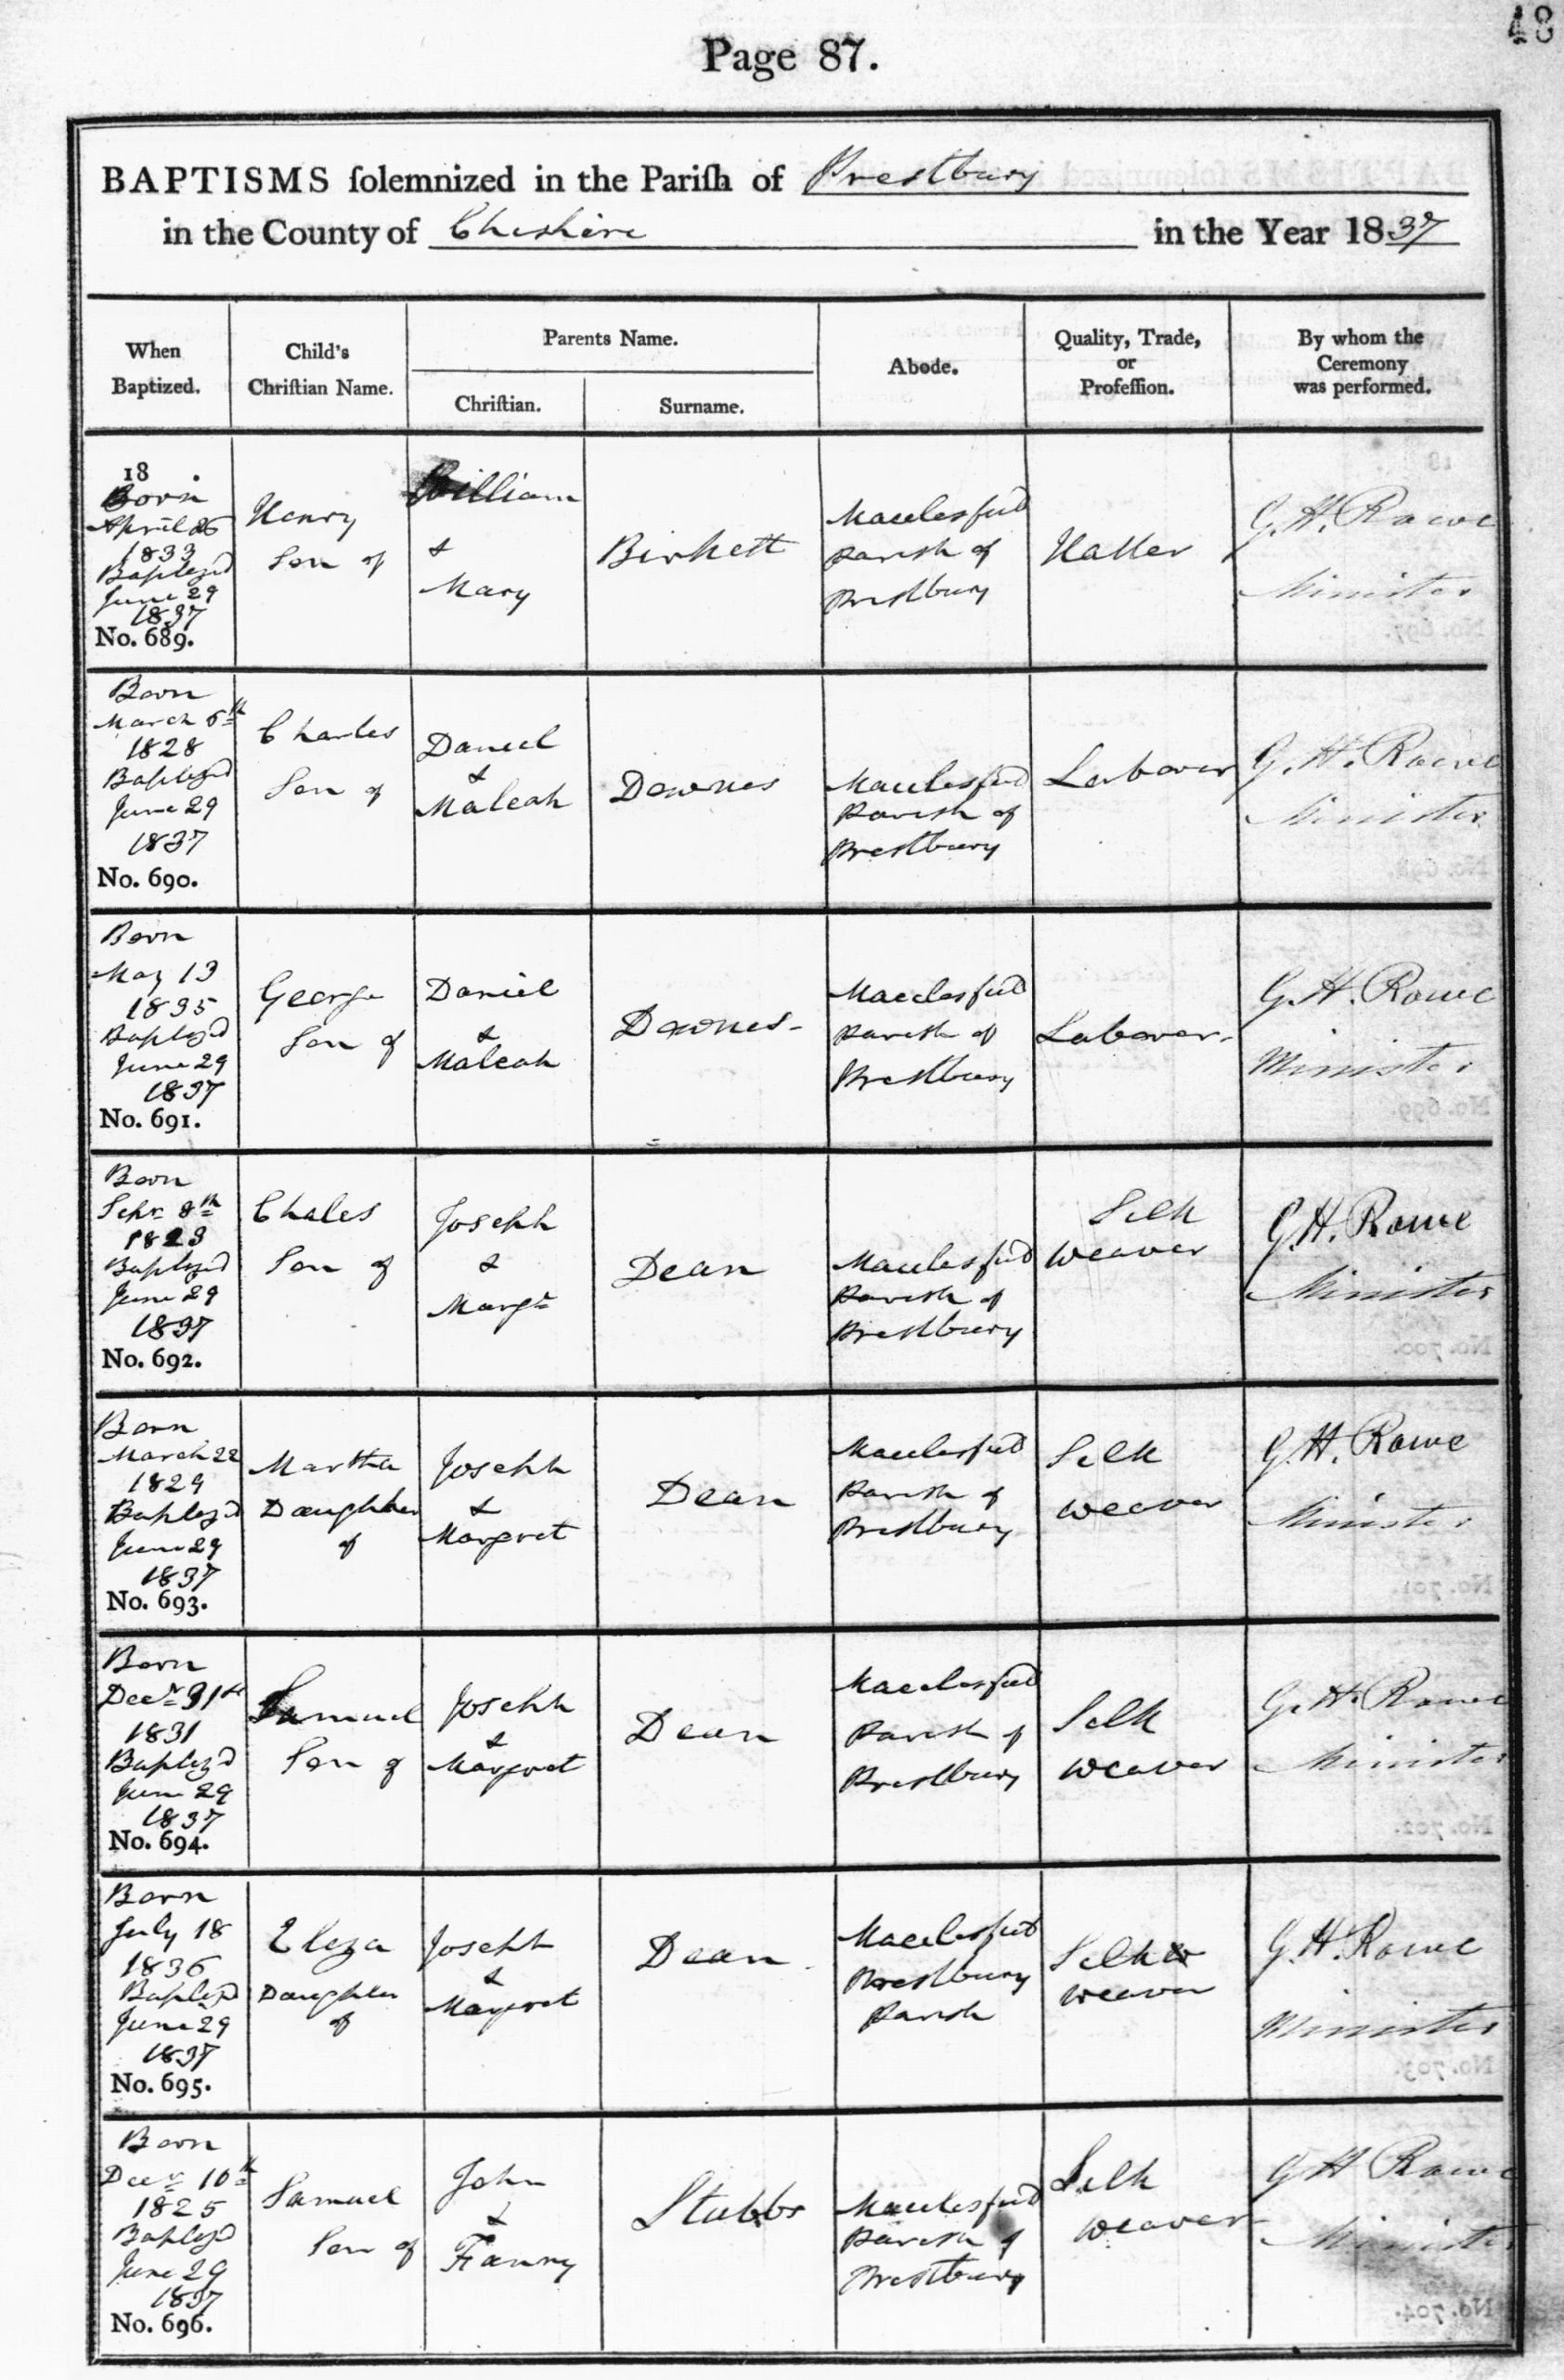 48
Page 87.
BAPTISMS solemnized in the Parish of Prestbury
in the County of Cheshire in the Year 1837
When
Baptized.
Child's
Christian Name.
Parents Name.
Christian.
Surname.
Abode.
Quality, Trade,
or
Profession.
By whom the
Ceremony
was performed.
18
Born
April 26
1833
Baptezd
June 29
1837
No. 689.
Henry
Son of
William
&
Mary
Birkett
Macclesfield
Parish of
Prestbury
Hatter
G. H. Rowe
Minister
Born
March 6th
1828
Baptezd
June 29
1837
No. 690.
Charles
Son of
Daniel
&
Maleah
Downes
Macclesfield
Parish of
Prestbury
Laborer
G. H. Rowe
Minister
Born
May 13
1835
Baptezd
June 29
1837
No. 691.
George
Son of
Daniel
&
Maleah
Downes
Macclesfield
Parish of
Prestbury
Laborer
G. H. Rowe
Minister
Born
Sepr 8th
1823
Baptezd
June 29
1837
No. 692.
Chales
Son of
Joseph
&
Margt
Dean
Macclesfield
Parish of
Prestbury
Silk
weaver
G. H. Rowe
Minister
Born
March 22
1829
Baptezd
June 29
1837
No. 693.
Martha
Daughter
of
Joseph
&
Margret
Dean
Macclesfield
Parish of
Prestbury
Silk
weaver
G. H. Rowe
Minister
Born
Decr 31st
1831
Baptezd
June 29
1837
No. 694.
Samuel
Son of
Joseph
&
Margret
Dean
Macclesfield
Parish of
Prestbury
Silk
weaver
G. H. Rowe
Minister
Born
July 18
1836
Baptezd
June 29
1837
No. 695.
Eleza
Daughter
of
Joseph
&
Margret
Dean
Macclesfield
Prestbury
Parish
Silk
weaver
G. H. Rowe
Minister
Born
Decr 10th
1825
Baptezd
June 29
1837
No. 696.
Samuel
Son of
John
&
Fanny
Stubbs
Macclesfield
Parish of
Prestbury
Silk
weaver
G H Rowe
Minister